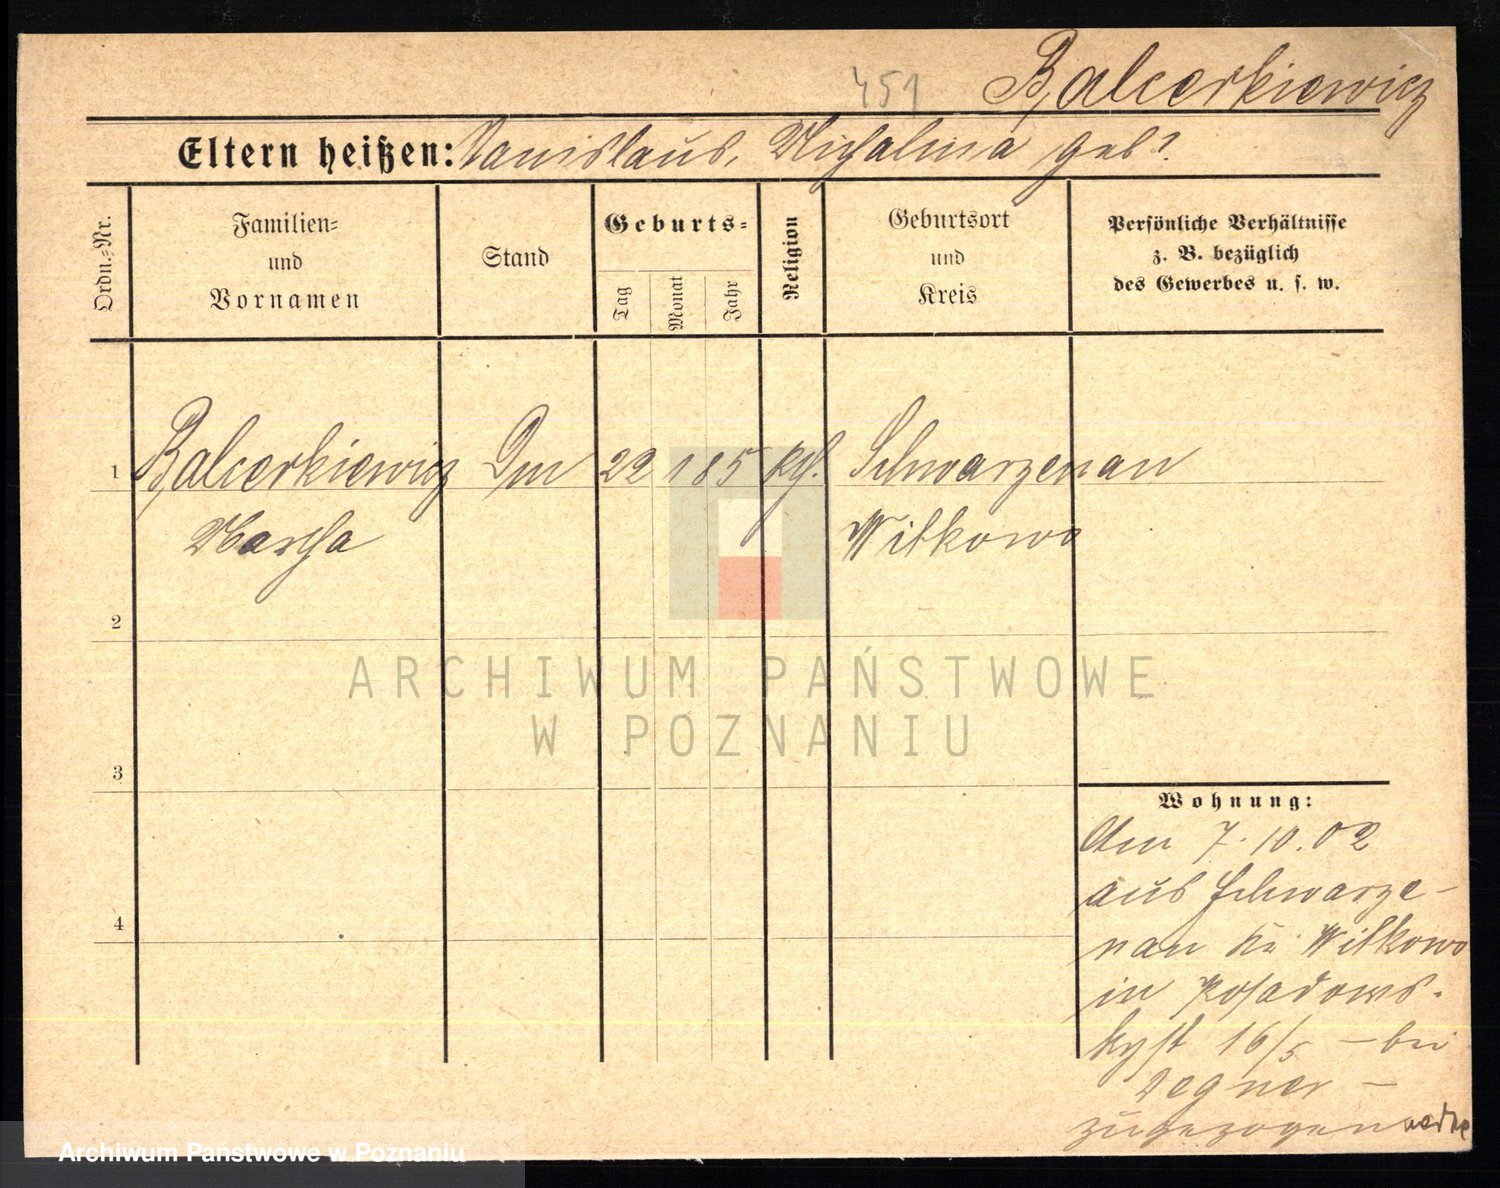 451 Balcerkiewicz
Eltern heißen: Stanislaus, Michalina geb?
Ordn.=Nr.
Familien=
und
Vornamen
Stand
Geburts=
Tag
Monat
Jahr
Religion
Geburtsort
und
Kreis
Persönliche Verhältnisse
z. B. bezüglich
des Gewerbes u. s. w.
1 Balcerkiewicz 22 1 85 kth. Schwarzenau
Martha Witkowo
2
3
4
Wohnung:
Am 7.10.02
aus Schwarze-
nau Kr. Witkowo
in Posadows-
kyst 16/5 – bei
Degner –
zugezogen
ARCHIWUM PAŃSTWOWE
W POZNANIU
Archiwum Państwowe w Poznaniu